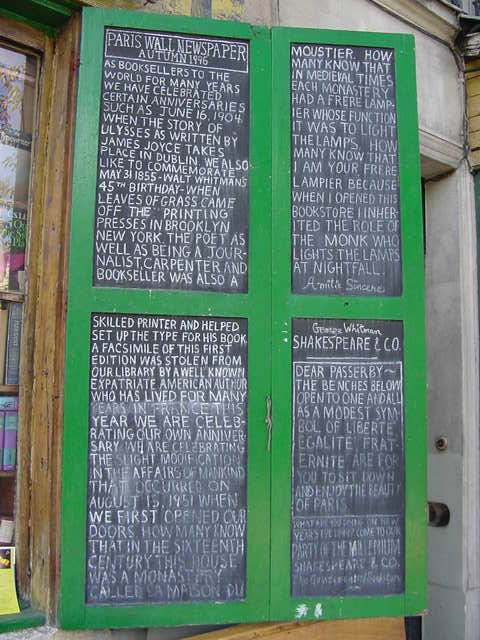 PARIS WALL NEWSPAPER
AUTUMN 1996
AS BOOKSELLERS TO THE
WORLD FOR MANY YEARS
WE HAVE CELEBRATED
CERTAIN ANNIVERSARIES
SUCH AS JUNE 16, 1904
WHEN THE STORY OF
ULYSSES AS WRITTEN BY
JAMES JOYCE TAKES
PLACE IN DUBLIN. WE ALSO
LIKE TO COMMEMORATE
MAY 31 1855-WALT WHITMAN'S
45TH BIRTHDAY-WHEN
LEAVES OF GRASS CAME
OFF THE PRINTING
PRESSES IN BROOKLYN
NEW YORK THE POET AS
WELL AS BEING A JOUR-
NALIST, CARPENTER AND
BOOKSELLER WAS ALSO A
SKILLED PRINTER AND HELPED
SET UP THE TYPE FOR HIS BOOK
A FACSIMILE OF THIS FIRST
EDITION WAS STOLEN FROM
OUR LIBRARY BY A WELL KNOWN
EXPATRIATE AMERICAN AUTHOR
WHO HAS LIVED FOR MANY
YEARS IN FRANCE THIS
YEAR WE ARE CELEB-
RATING OUR OWN ANNIVER-
SARY WE ARE CELEBRATING
THE SLIGHT MODIFICATION
IN THE AFFAIRS OF MANKIND
THAT OCCURRED ON
AUGUST 15, 1951 WHEN
WE FIRST OPENED OUR
DOORS. HOW MANY KNOW
THAT IN THE SIXTEENTH
CENTURY THIS HOUSE
WAS A MONASTERY
CALLED LA MAISON DU
MOUSTIER. HOW
MANY KNOW THAT
IN MEDIEVAL TIMES
EACH MONASTERY
HAD A FRERE LAMP-
IER WHOSE FUNCTION
IT WAS TO LIGHT
THE LAMPS. HOW
MANY KNOW THAT
I AM YOUR FRERE
LAMPIER BECAUSE
WHEN I OPENED THIS
BOOKSTORE I INHER-
ITED THE ROLE OF
THE MONK WHO
LIGHTS THE LAMPS
AT NIGHTFALL.
Amitié Sincere
George Whitman
SHAKESPEARE & CO.
DEAR PASSERBY~
THE BENCHES BELOW
OPEN TO ONE AND ALL
AS A MODEST SYM
BOL OF LIBERTE
EGALITE FRAT-
ERNITE ARE FOR
YOU TO SIT DOWN
AND ENJOY THE BEAUTY
OF PARIS
WHAT ARE YOU DOING ON NEW
YEARS EVE COME TO OUR
PARTY OF THE MILLENNIUM
SHAKESPEARE & CO.